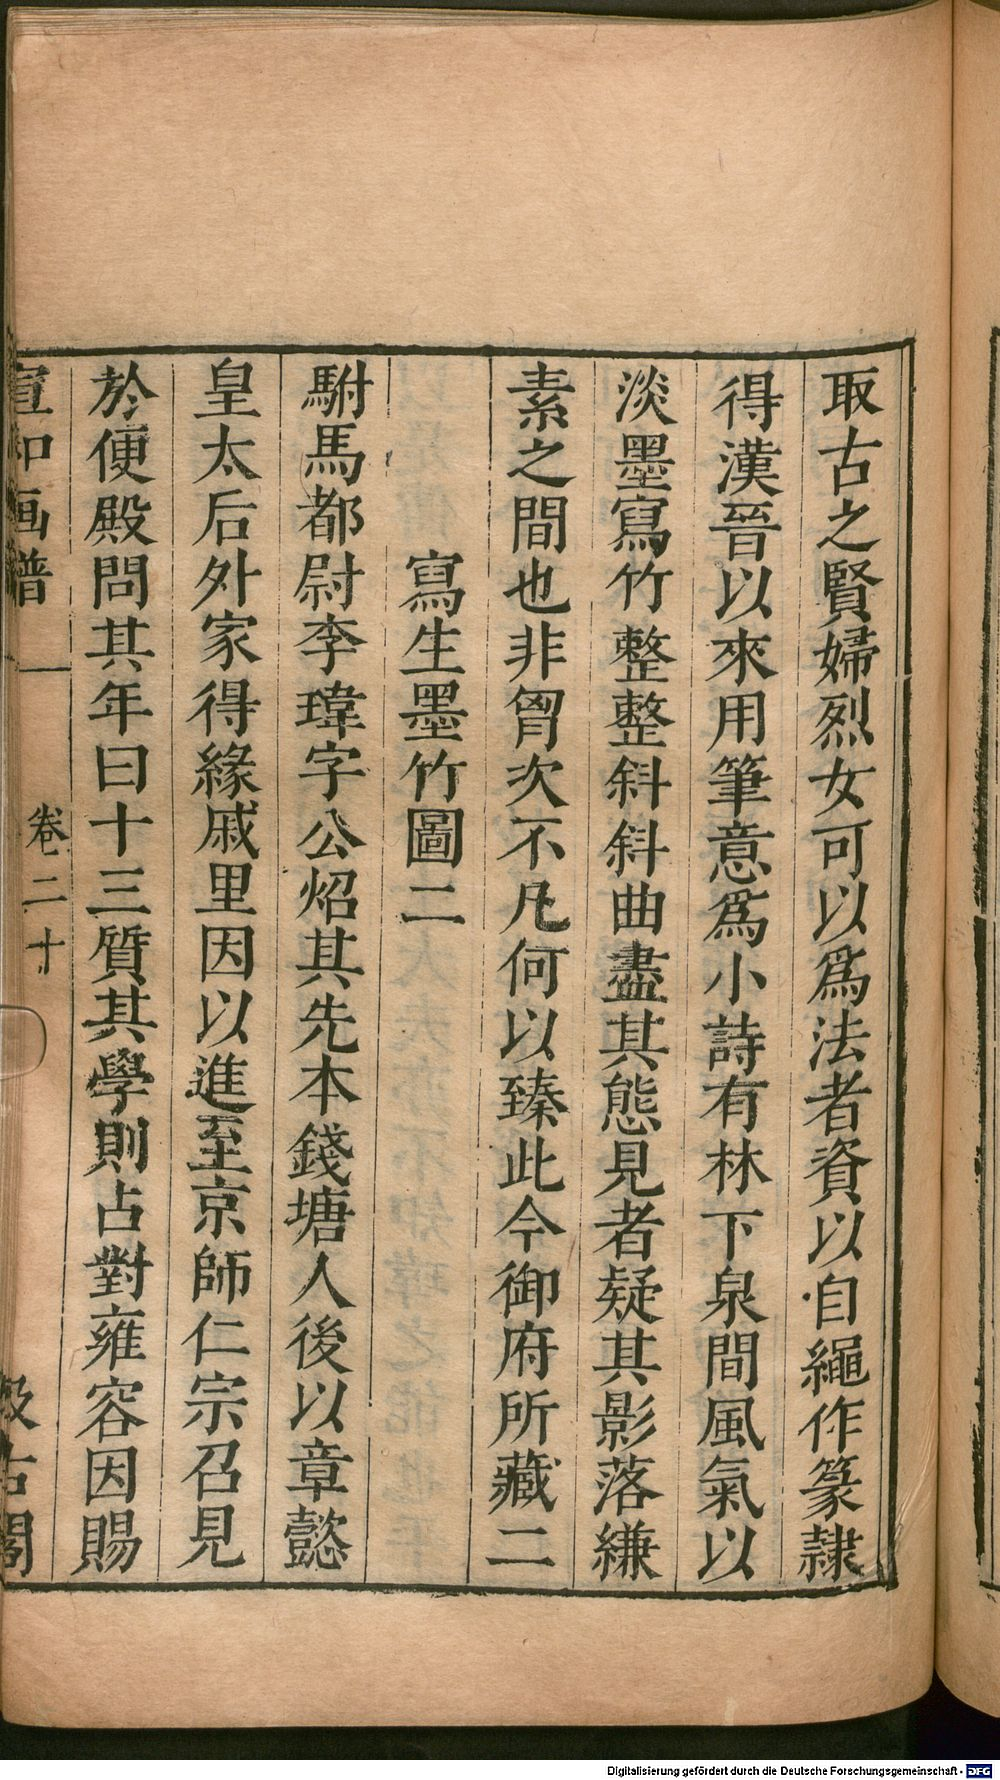 取古之賢婦烈女可以爲法者資以自繩作篆隷
得漢晉以來用筆意爲小詩有林下泉間風氣以
淡墨寫竹整整斜斜曲盡其態見者疑其影落縑
素之間也非胷次不凡何以臻此今御府所藏二
寫生墨竹圖二
駙馬都尉李瑋字公炤其先本錢塘人後以章懿
皇太后外家得緣戚里因以進至京師仁宗召見
於便殿問其年曰十三質其學則占對雍容因賜
宣和画譜 卷二十 汲古閣
Digitalisierung gefördert durch die Deutsche Forschungsgemeinschaft - DFG